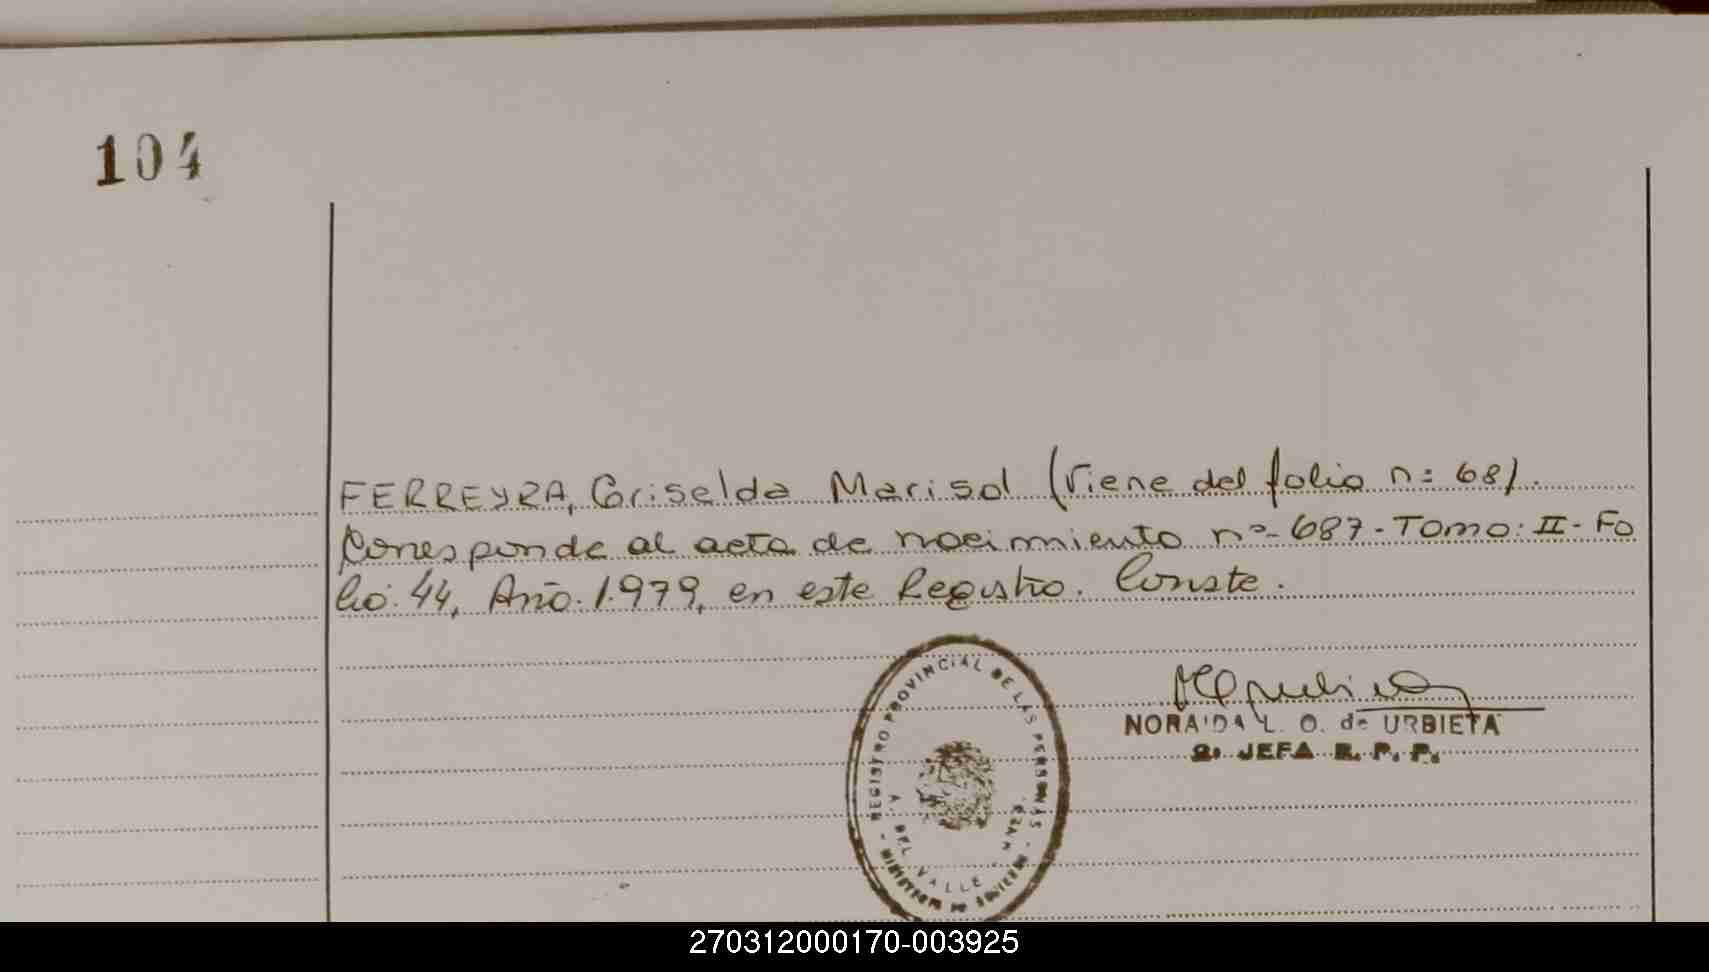 104
FERREYRA, Griselda Marisol (Viene del folio n: 68).
Corresponde al acta de nacimiento nº- 687 - Tomo: II - Fo
lio: 44, Año. 1.979, en este Registro. Conste.
NORAIDA L. O. de URBIETA
JEFA R. P. P.
REGISTRO PROVINCIAL DE LAS PERSONAS
DEL VALLE
270312000170-003925